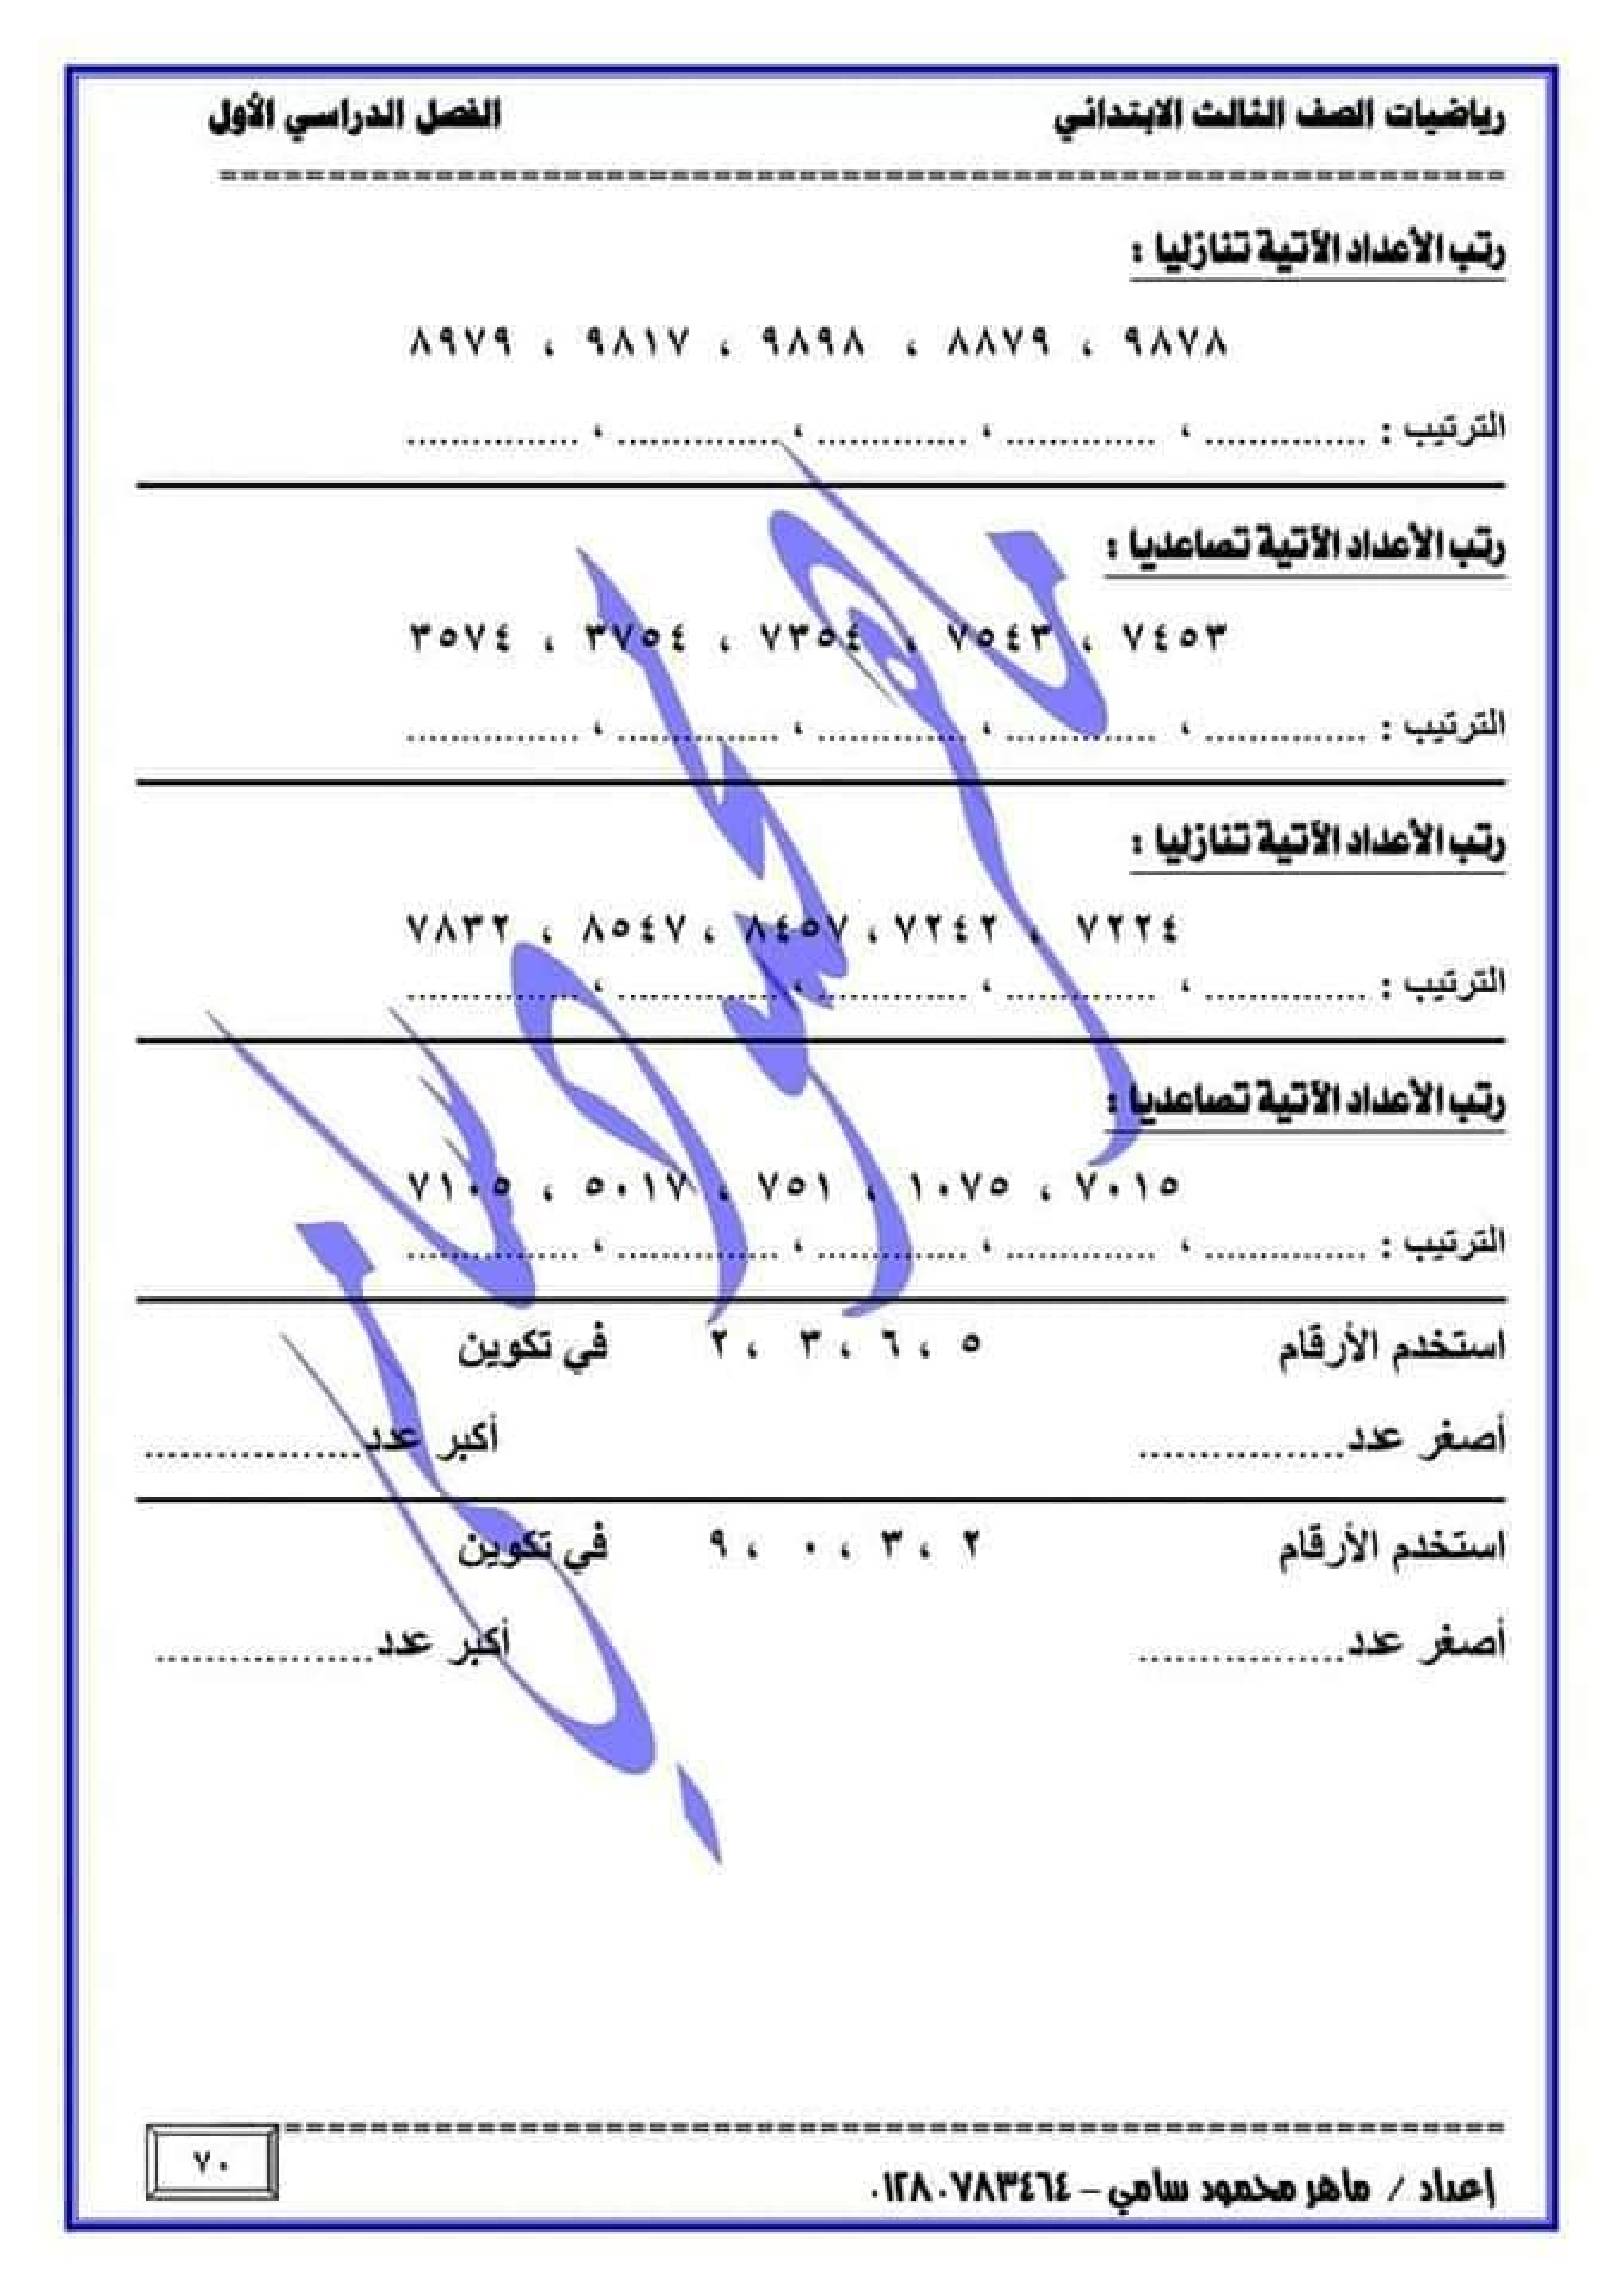 رياضيات الصف الثالث الابتدائي الفصل الدراسي الأول
رتب الأعداد الآتية تنازليا :
٩٨٧٨ ، ٨٨٧٩ ، ٩٨٩٨ ، ٩٨١٧ ، ٨٩٧٩
الترتيب : ............... ، .............. ، .............. ، ............... ، ................
رتب الأعداد الآتية تصاعديا :
٧٤٥٣ ، ٧٥٤٣ ، ٧٣٥٤ ، ٣٧٥٤ ، ٣٥٧٤
الترتيب : ............... ، .............. ، .............. ، ............... ، ................
رتب الأعداد الآتية تنازليا :
٧٢٢٤ ، ٧٢٤٢ ، ٨٤٥٧ ، ٨٥٤٧ ، ٧٨٣٢
الترتيب : ............... ، .............. ، .............. ، ............... ، ................
رتب الأعداد الآتية تصاعديا :
٧٠١٥ ، ١٠٧٥ ، ٧٥١ ، ٥٠١٧ ، ٧١٠٥
الترتيب : ............... ، .............. ، .............. ، ............... ، ................
استخدم الأرقام ٥ ، ٦ ، ٣ ، ٢ في تكوين
أصغر عدد................. أكبر عدد..................
استخدم الأرقام ٢ ، ٣ ، ٠ ، ٩ في تكوين
أصغر عدد................. أكبر عدد..................
٧٠
إعداد / ماهر محمود سامي – ٠١٢٨٠٧٨٣٤٦٤